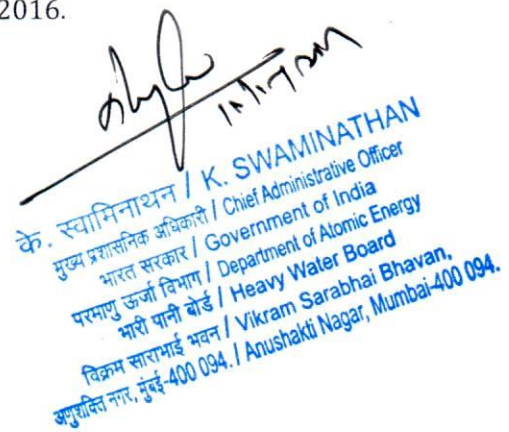 2016.
के. स्वामिनाथन / K. SWAMINATHAN
मुख्य प्रशासनिक अधिकारी / Chief Administrative Officer
भारत सरकार / Government of India
परमाणु ऊर्जा विभाग / Department of Atomic Energy
भारी पानी बोर्ड / Heavy Water Board
विक्रम साराभाई भवन / Vikram Sarabhai Bhavan,
अणुशक्ति नगर, मुंबई-400 094. / Anushakti Nagar, Mumbai-400 094.